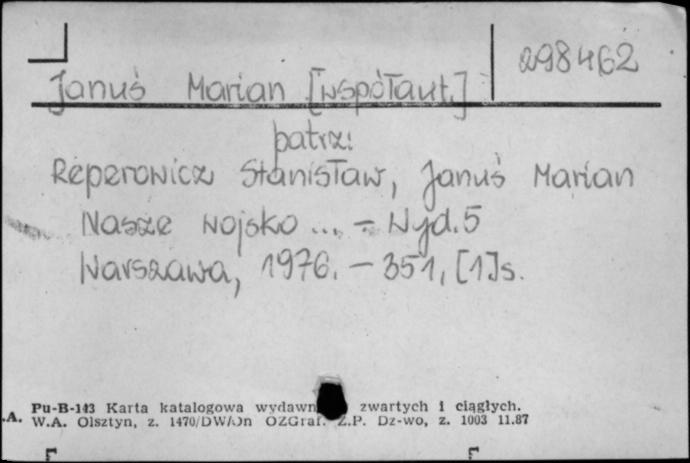 298462
Januś Marian [współaut.]
patrz:
Reperowicz Stanisław, Januś Marian
Nasze wojsko ... - Wyd. 5
Warszawa, 1976. - 351, [1]s.
Pu-B-143 Karta katalogowa wydawn zwartych i ciągłych.
.A. W.A. Olsztyn, z. 1470/DW/Dn OZGraf. Z.P. Dz-wo, z. 1003 11.87